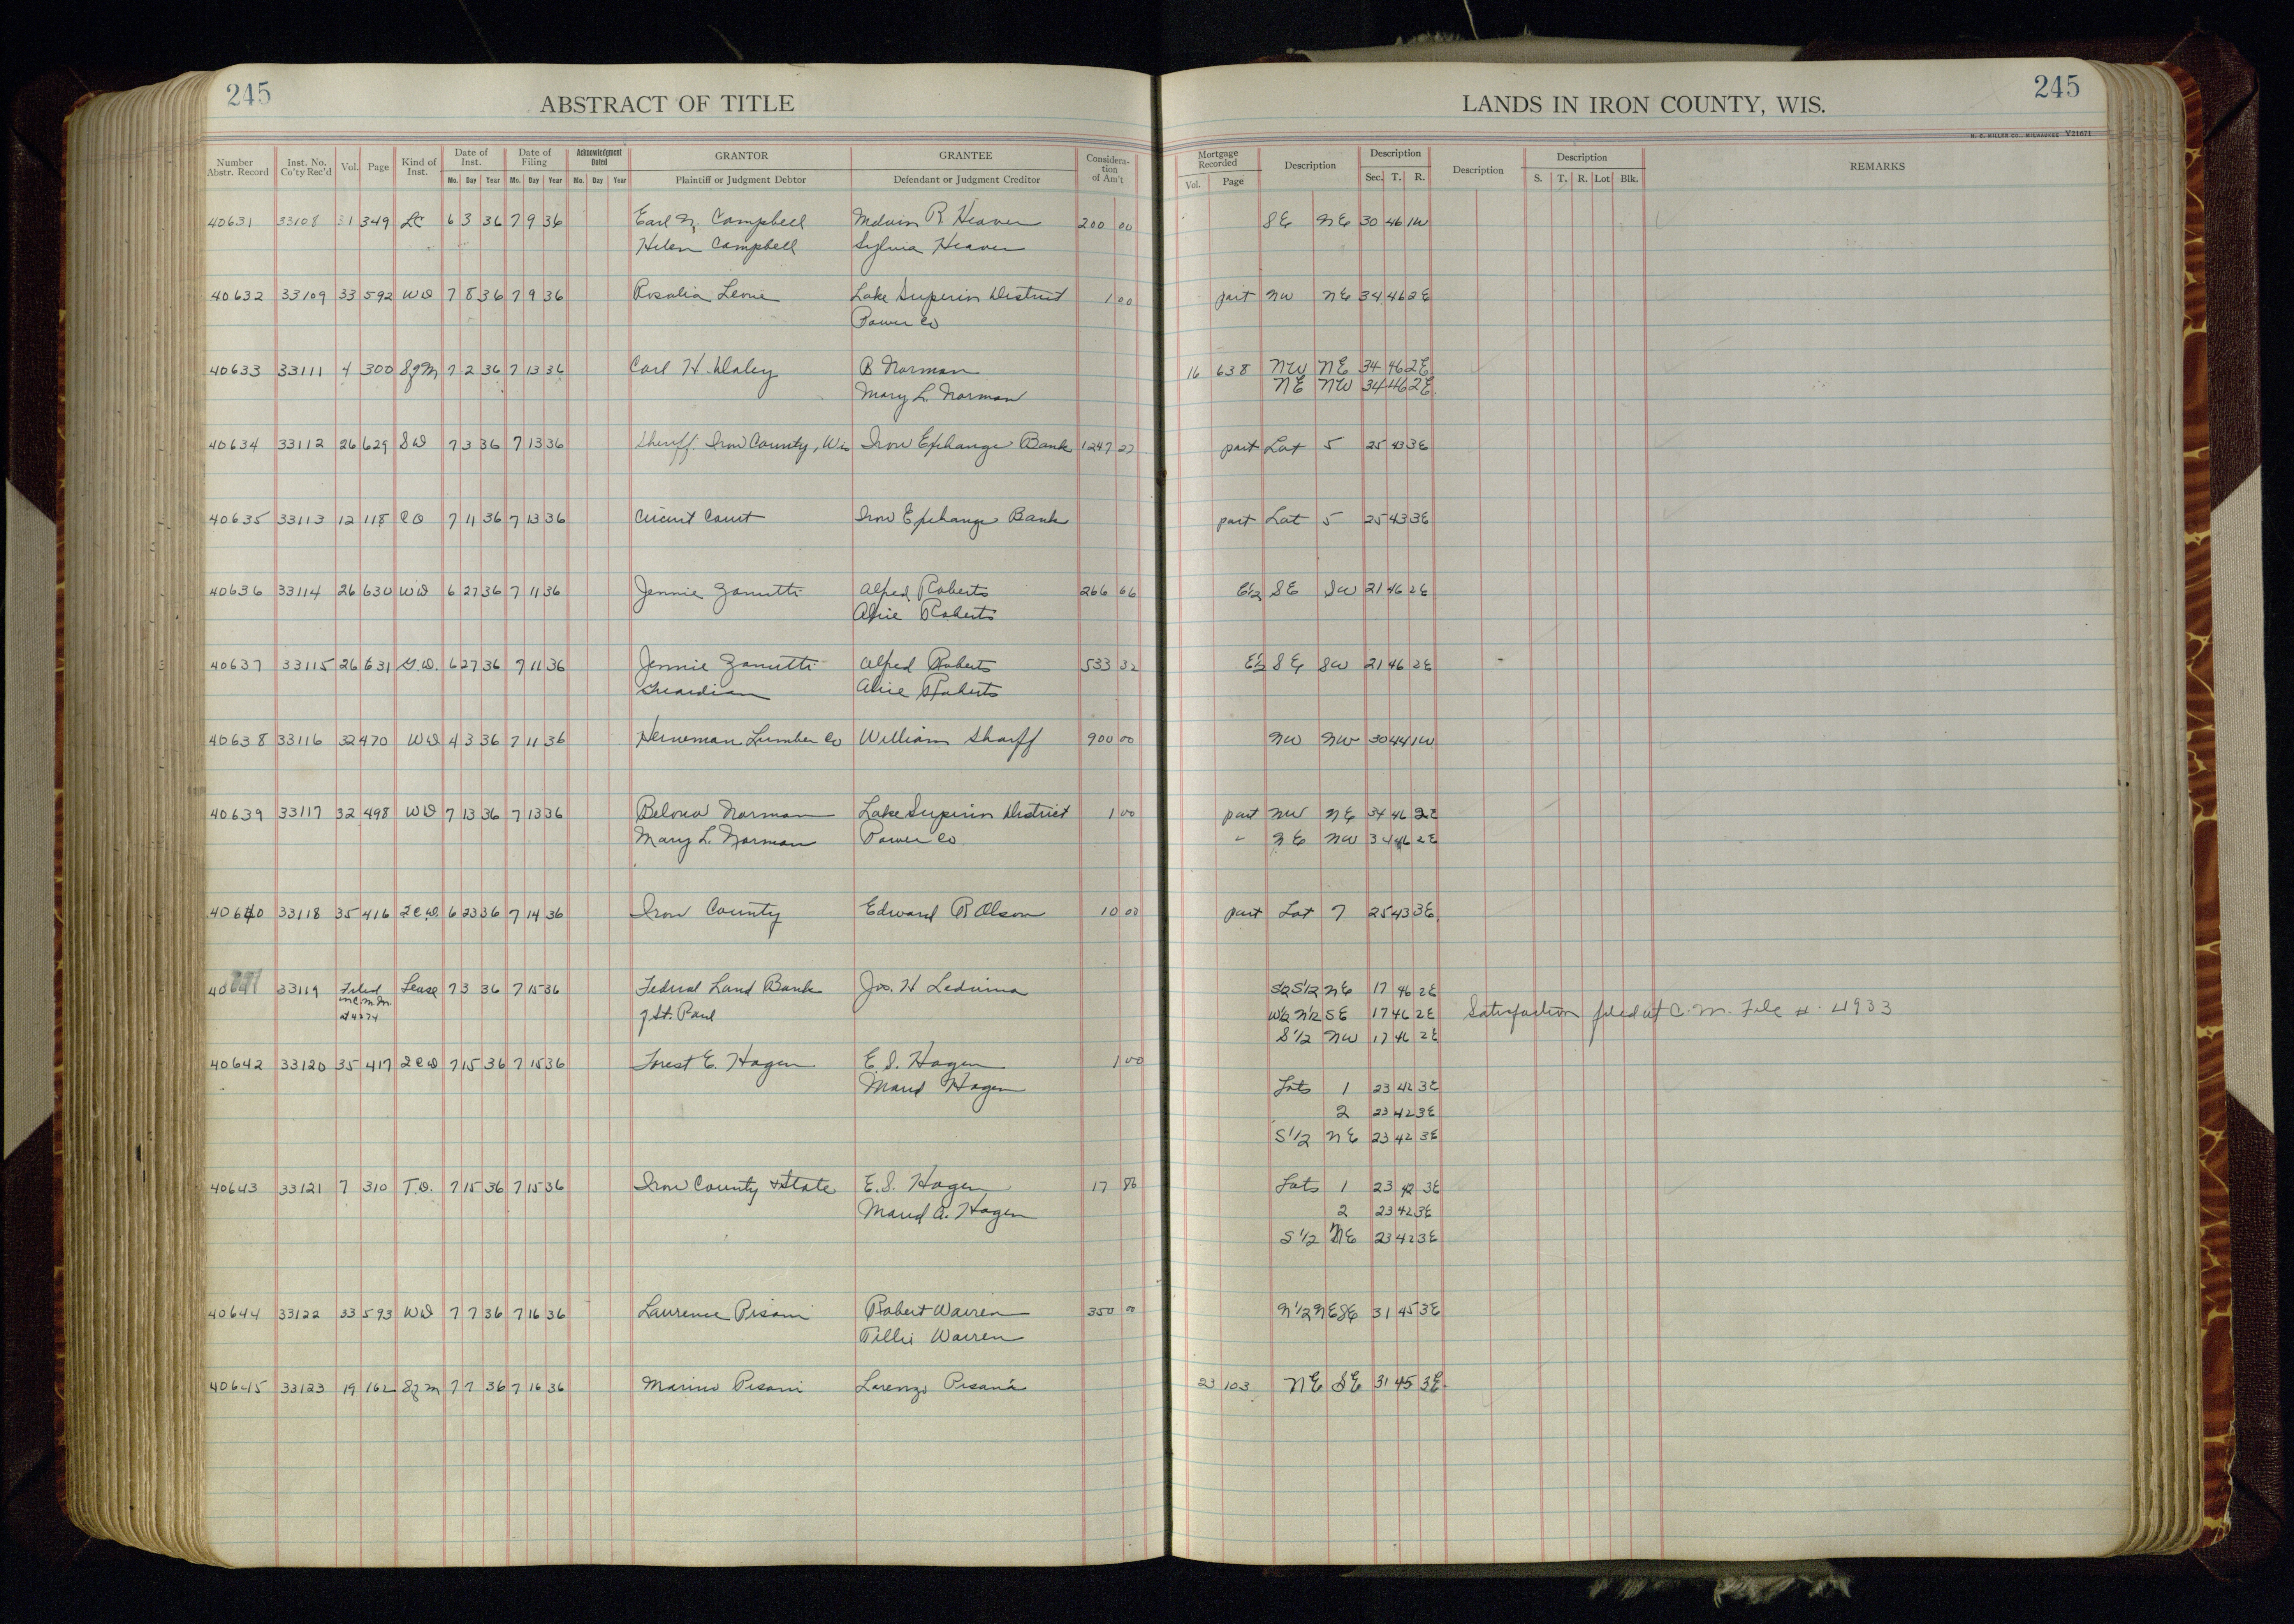 245
ABSTRACT OF TITLE
LANDS IN IRON COUNTY, WIS.
245
H. C. MILLER CO., MILWAUKEE V21671
Number Abstr. Record Inst. No. Co'ty Rec'd Vol. Page Kind of Inst. Date of Inst. Mo. Day Year Date of Filing Mo. Day Year Acknowledgment Dated Mo. Day Year GRANTOR Plaintiff or Judgment Debtor GRANTEE Defendant or Judgment Creditor Considera-tion of Am't Mortgage Recorded Vol. Page Description Description Sec. T. R. Description Description S. T. R. Lot Blk. REMARKS
40631 33108 31 349 LC 6 3 36 7 9 36 Earl N. Campbell Melvin R Heaver 200 00 SE NE 30 46 1W
Helen Campbell Sylvia Heaver
40632 33109 33 592 WD 7 8 36 7 9 36 Rosalia Leone Lake Superior District 1 00 part NW NE 34 46 2E
Power Co
40633 33111 4 300 SofM 7 2 36 7 13 36 Carl H. Daley B Norman 16 638 NW NE 34 46 2E
Mary L. Norman NE NW 34 46 2E
40634 33112 26 629 SD 7 3 36 7 13 36 Sheriff. Iron County, Wis Iron Exchange Bank 1247 27 part Lot 5 25 43 3E
40635 33113 12 118 CO 7 11 36 7 13 36 Circuit Court Iron Exchange Bank part Lot 5 25 43 3E
40636 33114 26 630 WD 6 27 36 7 11 36 Jennie Zanutti Alfred Roberts 266 66 E1/2 SE SW 21 46 2E
Alice Roberts
40637 33115 26 631 G.D. 6 27 36 7 11 36 Jennie Zanutti Alfred Roberts 533 32 E1/2 SE SW 21 46 2E
Guardian Alice Roberts
40638 33116 32 470 WD 4 3 36 7 11 36 Heineman Lumber Co William Sharff 900 00 NW NW 30 44 1W
40639 33117 32 498 WD 7 13 36 7 13 36 Norman Lake Superior District 1 00 part NW NE 34 46 2E
Mary L. Norman Power Co " NE NW 34 46 2E
40640 33118 35 416 2CD. 6 23 36 7 14 36 Iron County Edward R Olson 10 00 part Lot 7 25 43 3E
40641 33119 Filed Lease 7 3 36 7 15 36 Federal Land Bank Jos. H S1/2S1/2 NE 17 46 2E
in C M M of St. Paul W1/2 N1/2 SE 17 46 2E Satisfaction filed at C. M. File #. 4933
at 4074 S1/2 NW 17 46 2E
40642 33120 35 417 2CD 7 15 36 7 15 36 Forest E. Hagen E. S. Hagen 1 00
Maud Hagen Lots 1 23 42 3E
2 23 42 3E
S1/2 NE 23 42 3E
40643 33121 7 310 T.D. 7 15 36 7 15 36 Iron County & State E. S. Hagen 17 86 Lots 1 23 42 3E
Maud A. Hagen 2 23 42 3E
S1/2 NE 23 42 3E
40644 33122 33 593 WD 7 7 36 7 16 36 Laurence Pisani Robert Warren 350 00 N1/2 NE SE 31 45 3E
Tillie Warren
40645 33123 19 162 SofM 7 7 36 7 16 36 Marino Pisani Lorenzo Pisani 23 103 NE SE 31 45 3E